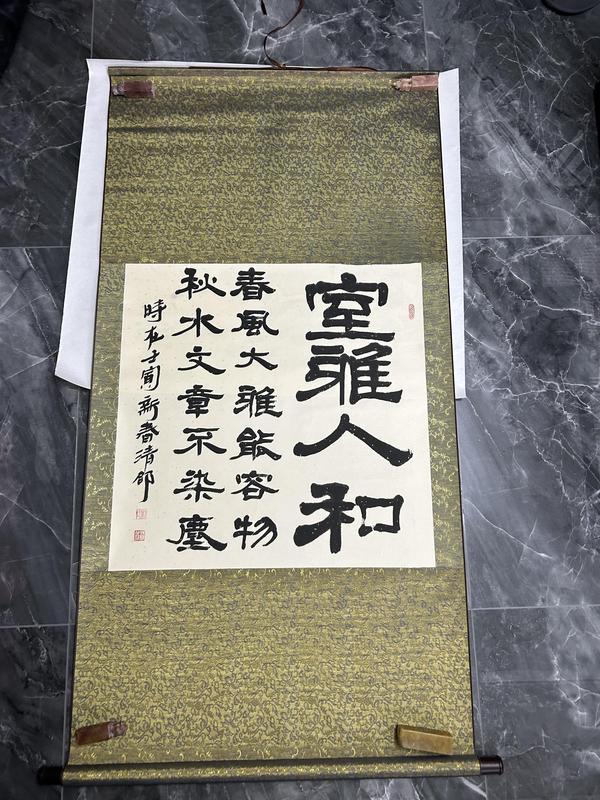 室雅人和
春風大雅能容物
秋水文章不染塵
時在壬寅新春清郎